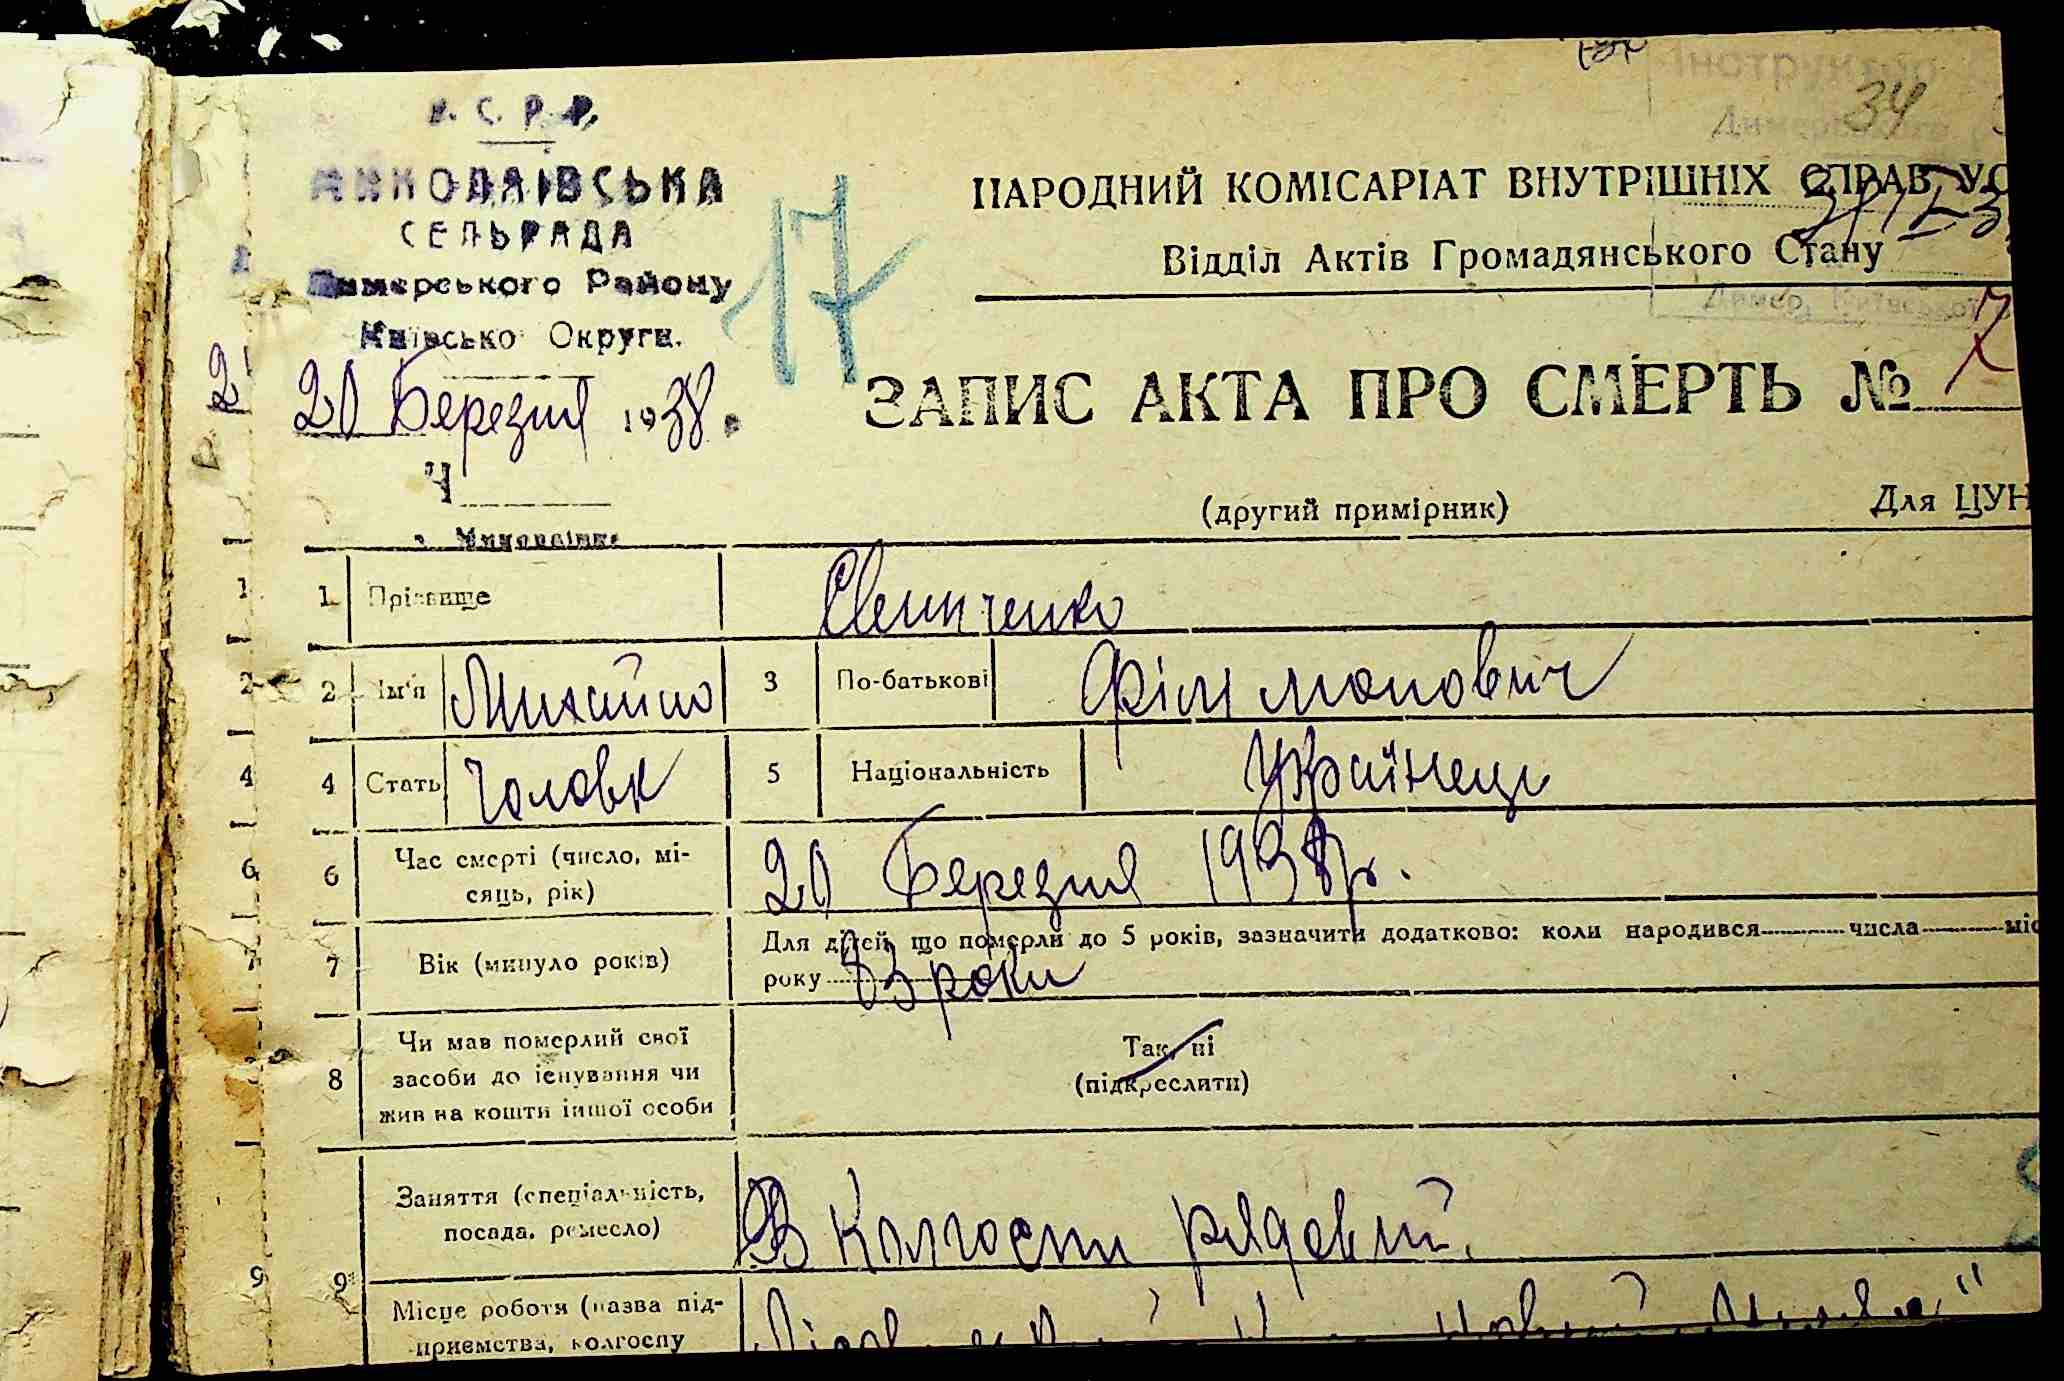 У. С. Р. Р.
34
МИКОЛАЇВСЬКА
СЕЛЬРАДА
Димерського Району
Київсько Округи.
17
НАРОДНИЙ КОМІСАРІАТ ВНУТРІШНІХ СПРАВ УС
Відділ Актів Громадянського Стану
20 Березня 1938 р
ЗАПИС АКТА ПРО СМЕРТЬ № 7
Ч
(другий примірник) Для ЦУН
1 1 Прізвище
2 2 Ім'я Михайло 3 По-батькові Філімонович
4 4 Стать Чоловк 5 Національність Українець
6 6 Час смерті (число, мі-
сяць, рік) 20 Березня 1938р.
7 7 Вік (минуло років) Для дітей, що померли до 5 років, зазначити додатково: коли народився числа міс
року 83 роки
8 Чи мав померлий свої
засоби до існування чи
жив на кошти іншої особи
Так, ні
(підкреслити)
9 9 Заняття (спеціальність,
посада, ремесло) В Колгоспи рядовий.
Місце роботи (назва під-
приємства, колгоспу